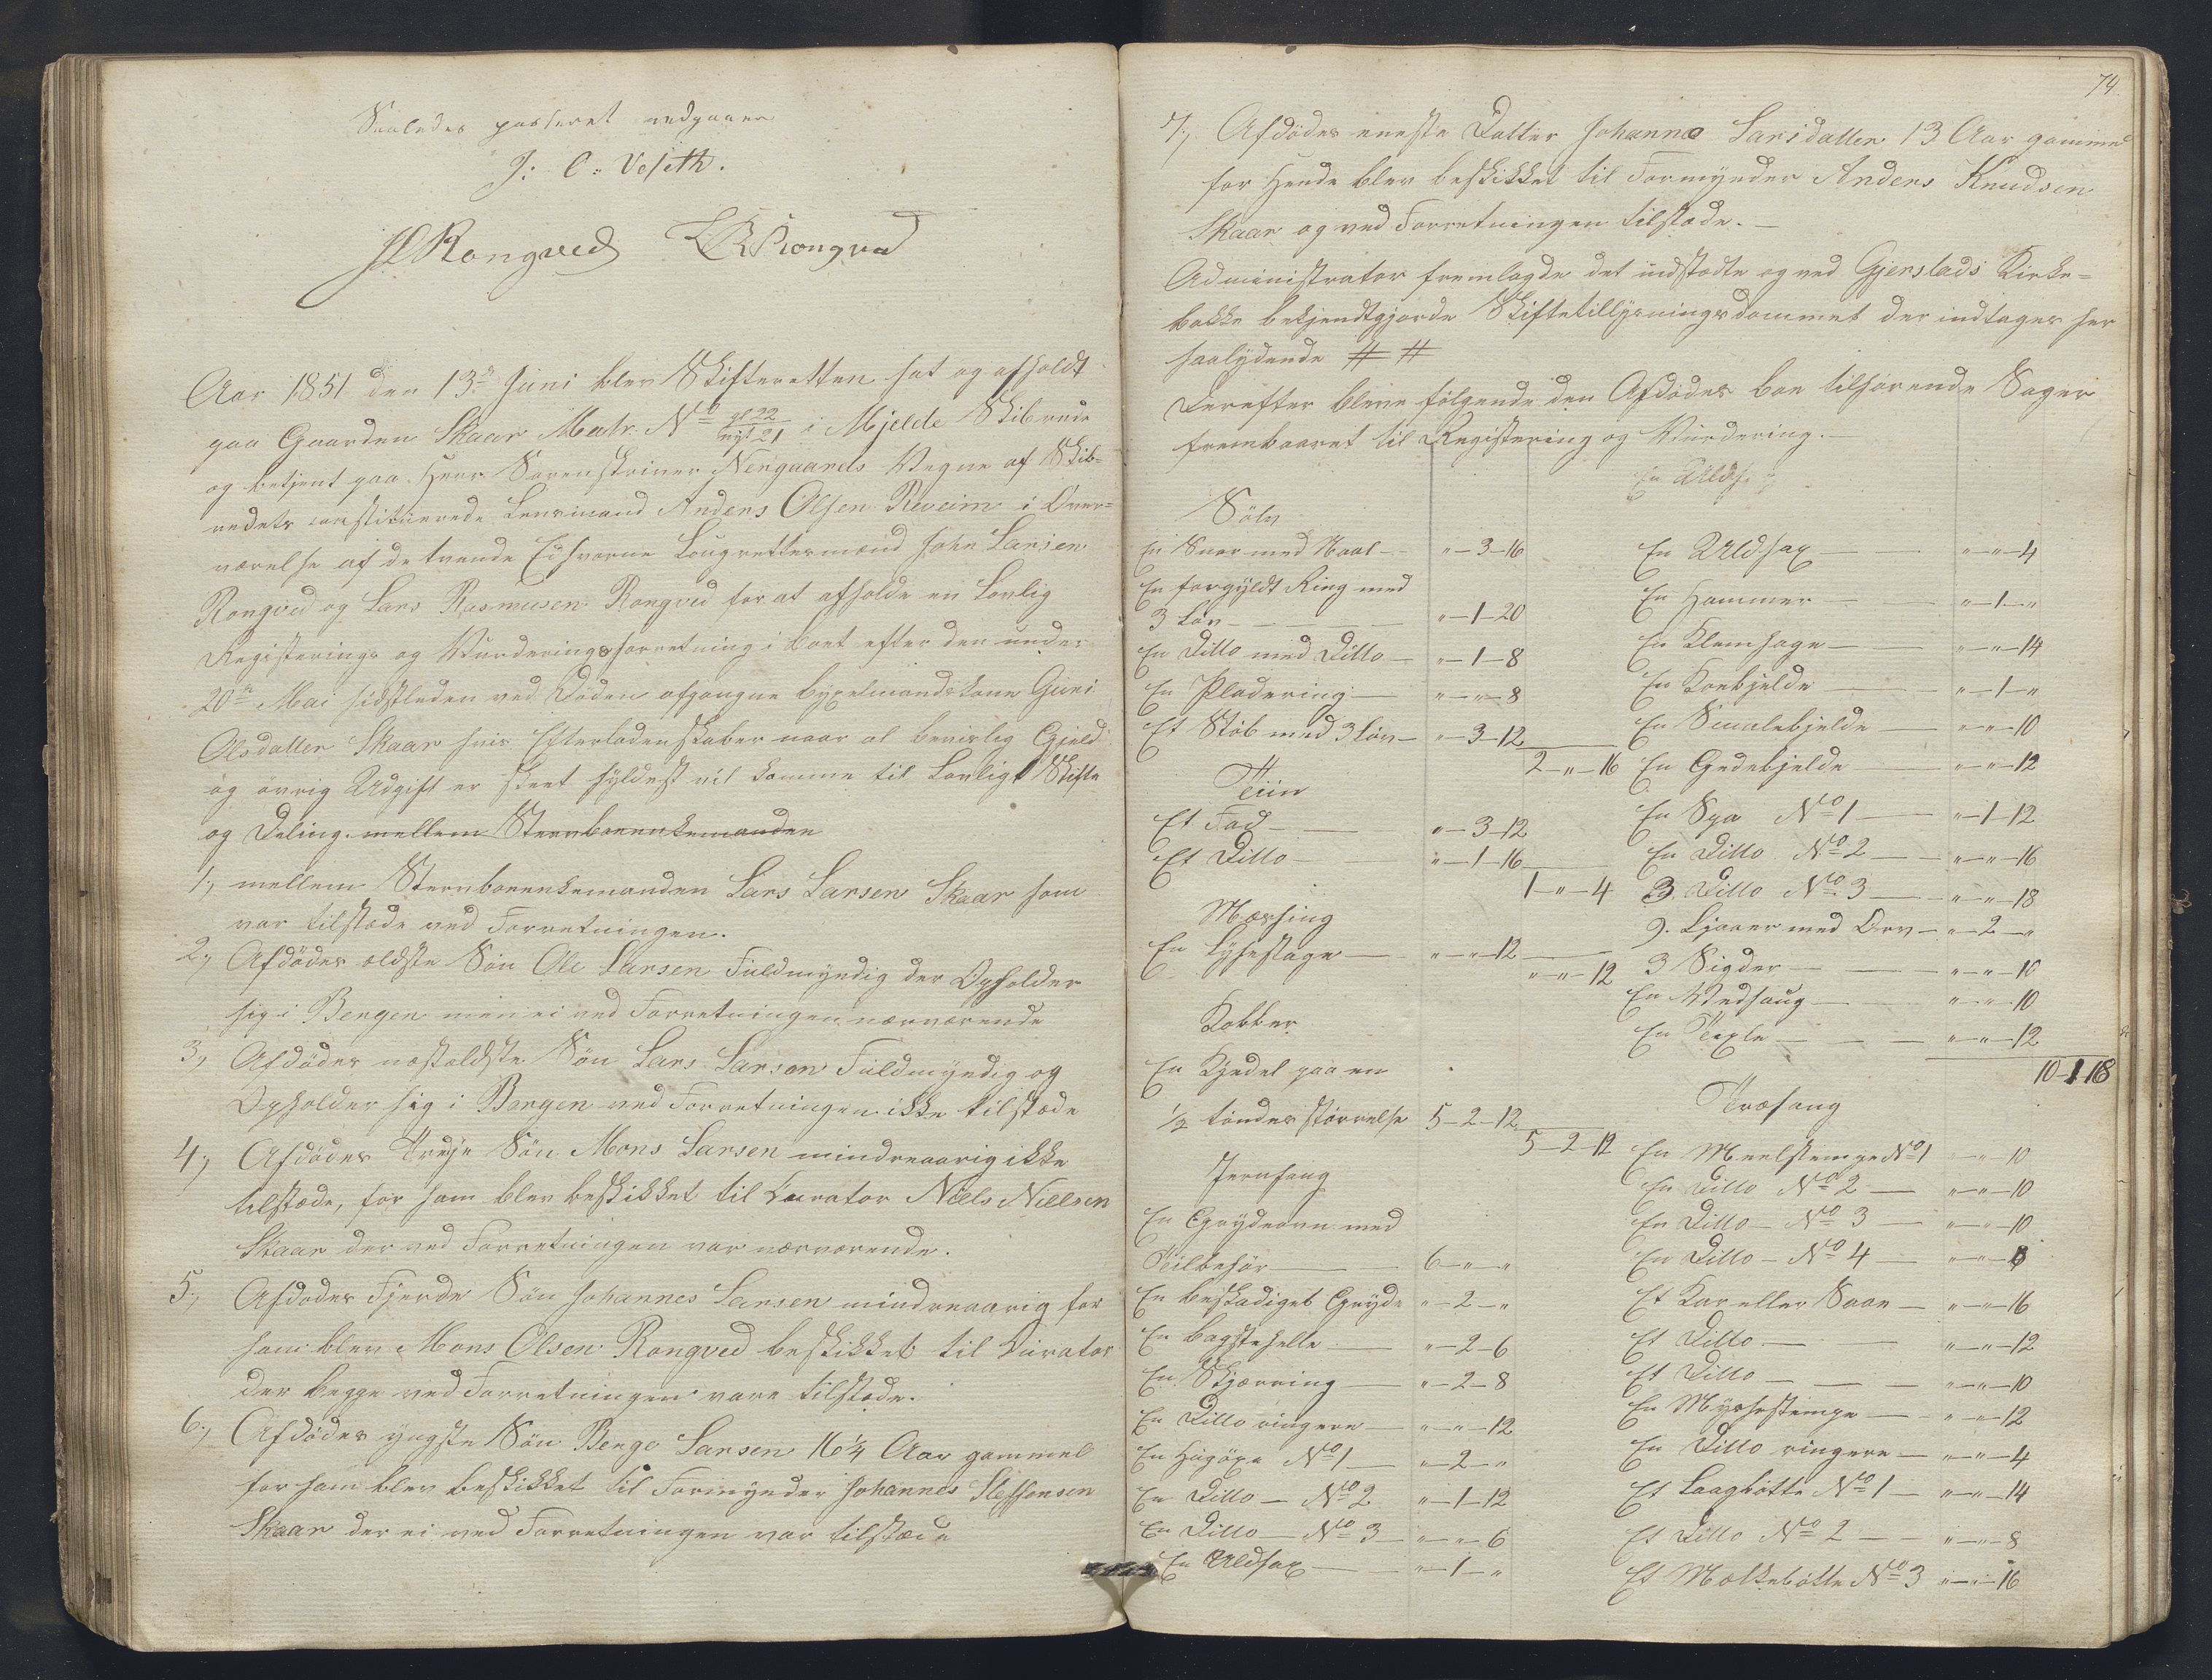 Saaledes passeret vedgaaer
J: C: Vefeth.
JLRongved LRRongved
Aar 1851 den 13de Juni blev Skifteretten sat og afholdt
paa Gaarden Skaar Matr. No gl 22 nyt 21 i Mjelde Skibrede
og betjent paa Herr Sorenskriver Nergaards Vegne af Skib-
redets constituerede Lensmand Anders Olsen Reveim i Over-
værelse af de tvende Eidsvorne Lougrettesmænd John Larsen
Rongved og Lars Rasmusen Rongved for at afholde en Lovlig
Registerings og Vurderingsforretning i Boet efter den under
20de Mai sidstleden ved Døden afgangne Gjni
Olsdatter Skaar hvis Efterladenskaber naar al beviislig Gjeld
og øvrig Udgift er skeet fyldest vil komme til Lovligt Skifte
og Deling. mellem Stervboeenkemanden
1, mellem Stervboeenkemanden Lars Larsen Skaar som
var tilstæde ved Forretningen.
2, Afdødes ældste Søn Ole Larsen Fuldmyndig der Opholder
sig i Bergen men ei ved Forretningen nærværende
3, Afdødes næstældste Søn Lars Larsen Fuldmyndig og
Opholder sig i Bergen ved Forretningen ikke tilstæde
4, Afdødes Tredje Søn Mons Larsen mindreaarig ikke
tilstæde, for ham blev beskikket til Curator Niels Nielsen
Skaar der ved Forretningen var nærværende.
5, Afdødes Fjerde Søn Johannes Larsen mindreaarig for
ham blev Mons Olsen Rongved beskikket til Curator
der begge ved Forretningen vare tilstæde.
6, Afdødes yngste Søn Benge Larsen 16 1/4 Aar gammel
for ham blev beskikket til Formynder Johannes Steffensen
Skaar der ei ved Forretningen var tilstæde
74
7, Afdødes eneste Datter Johanna Larsdatter 13 Aar gammel
for Hende blev beskikket til Formynder Anders Knudsen
Skaar og ved Forretningen tilstæde.
Administrator fremlagde det udstædte og ved Gjerstads Kirke-
bakke bekjendtgjorde Skiftetillysningsdocument der indtages her
saalydende # #
Derefter bleve følgende den Afdødes Boe tilhørende Sager
frembaaret til Registering og Vurdering.
Sølv
En Snor med Naal " 3 16
En forgyldt Ring med
3 Løv " 1 20
En Ditto med Ditto " 1 8
En Pladering " " 8
Et Støb med 3 Løv " 3 12
2 " 16
Tiin
Et Fad " 3 12
Et Ditto " 1 16
1 " 4
Messing
En Lysestage " " 12
" " 12
Kobber
En Kjedel paa en
1/2 tøndes størrelse 5 2 12
5 2 12
Jernfang
En Grydeovn med
Tilbehør 6 " "
En beskadiget Gryde " 2 "
En Bagstehelle " 2 6
En Skjærring " 2 8
En Ditto ringere " " 12
En Hugøxe No 1 " 2 "
En Ditto No 2 " 1 12
En Ditto No 3 " " 6
En Uldsax " 1 "
En Uldsax " " 4
En Hammer " 1 "
En Klemsage " " 14
En Koebjelde " 1 "
En Smalebjelde " " 10
En Gedebjelde " " 12
En Spa No 1 " 1 12
En Ditto No 2 " " 16
3 Ditto No 3 " " 18
9. Ljaaer med Orv " 2 "
3 Sigder " " 10
En Vedsaug " " 10
En Texle " " 12
10 1 18
Træfang
En Meelstampe No 1 " 10
En Ditto No 2 " " 10
En Ditto No 3 " " 10
En Ditto No 4 " " 8
Et Kar eller Saae " " 16
Et Ditto " " 12
Et Ditto " " 10
En Myssestampe " " 12
En Ditto ringere " " 4
Et Laagbøtte No 1 " " 14
Et Ditto No 2 " " 8
Et Mælkebøtte No 3 " " 16